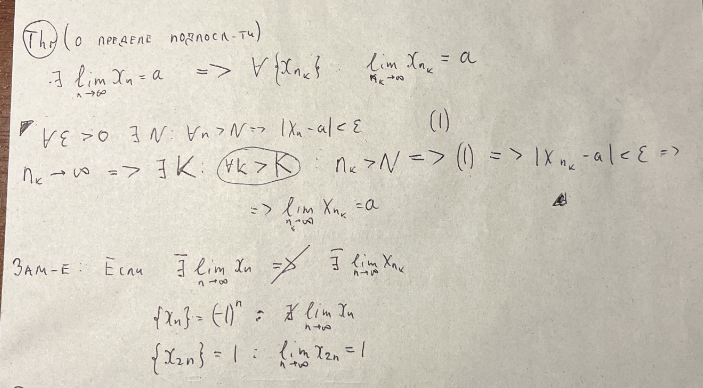 Thr (о пределе подпосл-ти)
∃ lim xₙ = a => ∀ {xₙₖ} lim xₙₖ = a
n→∞ nₖ→∞
∀ε > 0 ∃ N: ∀n > N => |xₙ - a| < ε (1)
nₖ → ∞ => ∃ K: ∀k > K : nₖ > N => (1) => |xₙₖ - a| < ε =>
=> lim xₙₖ = a
nₖ→∞
Зам-е: Если ∃̄ lim xₙ ≠> ∃̄ lim xₙₖ
n→∞ n→∞
{xₙ} = (-1)ⁿ : ∄ lim xₙ
n→∞
{x₂ₙ} = 1 : lim x₂ₙ = 1
n→∞